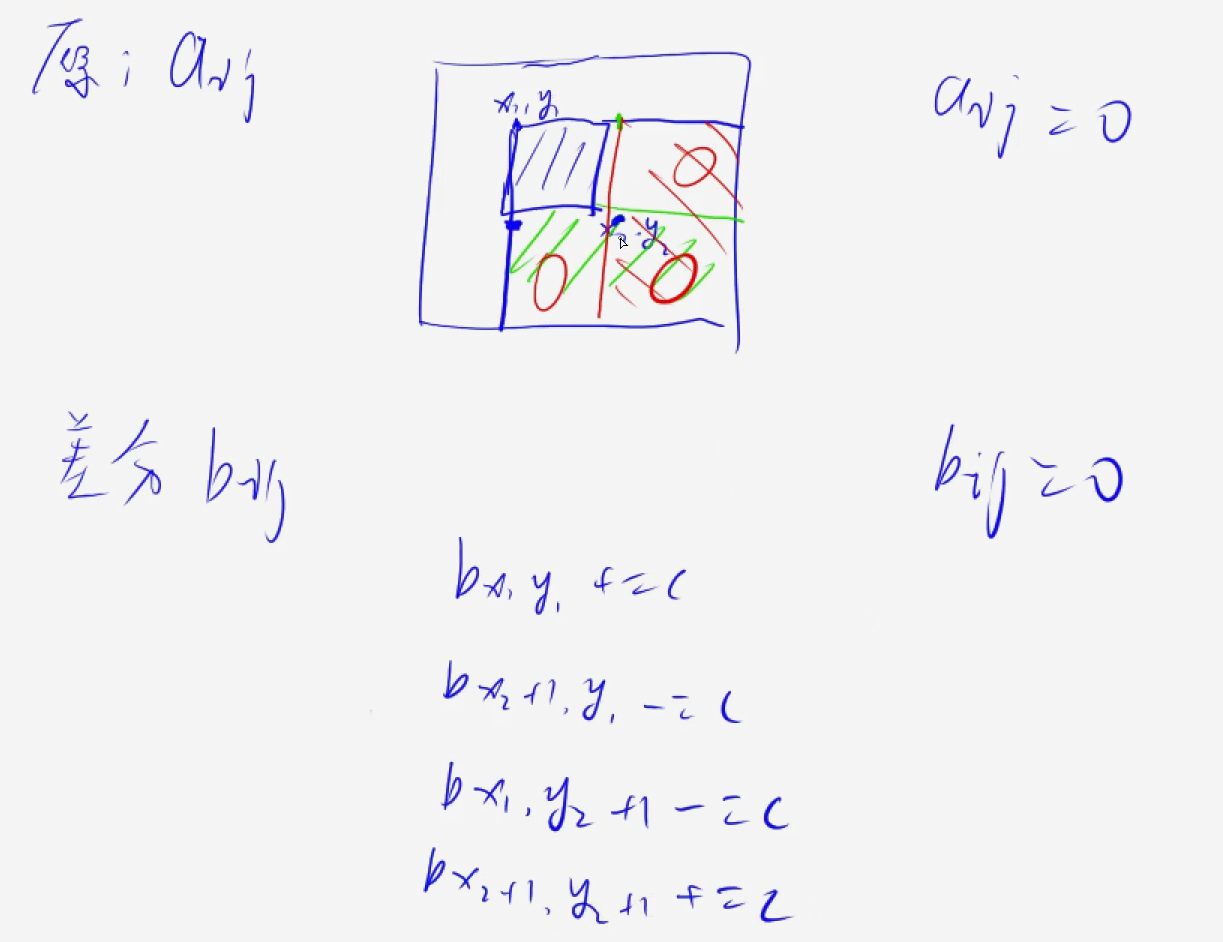 原：aij
aij = 0
x₁, y₁
0
x₂, y₂
0
0
差分 bij
bij = 0
bx₁ y₁ += c
bx₂+1, y₁ -= c
bx₁, y₂+1 -= c
bx₂+1, y₂+1 += c